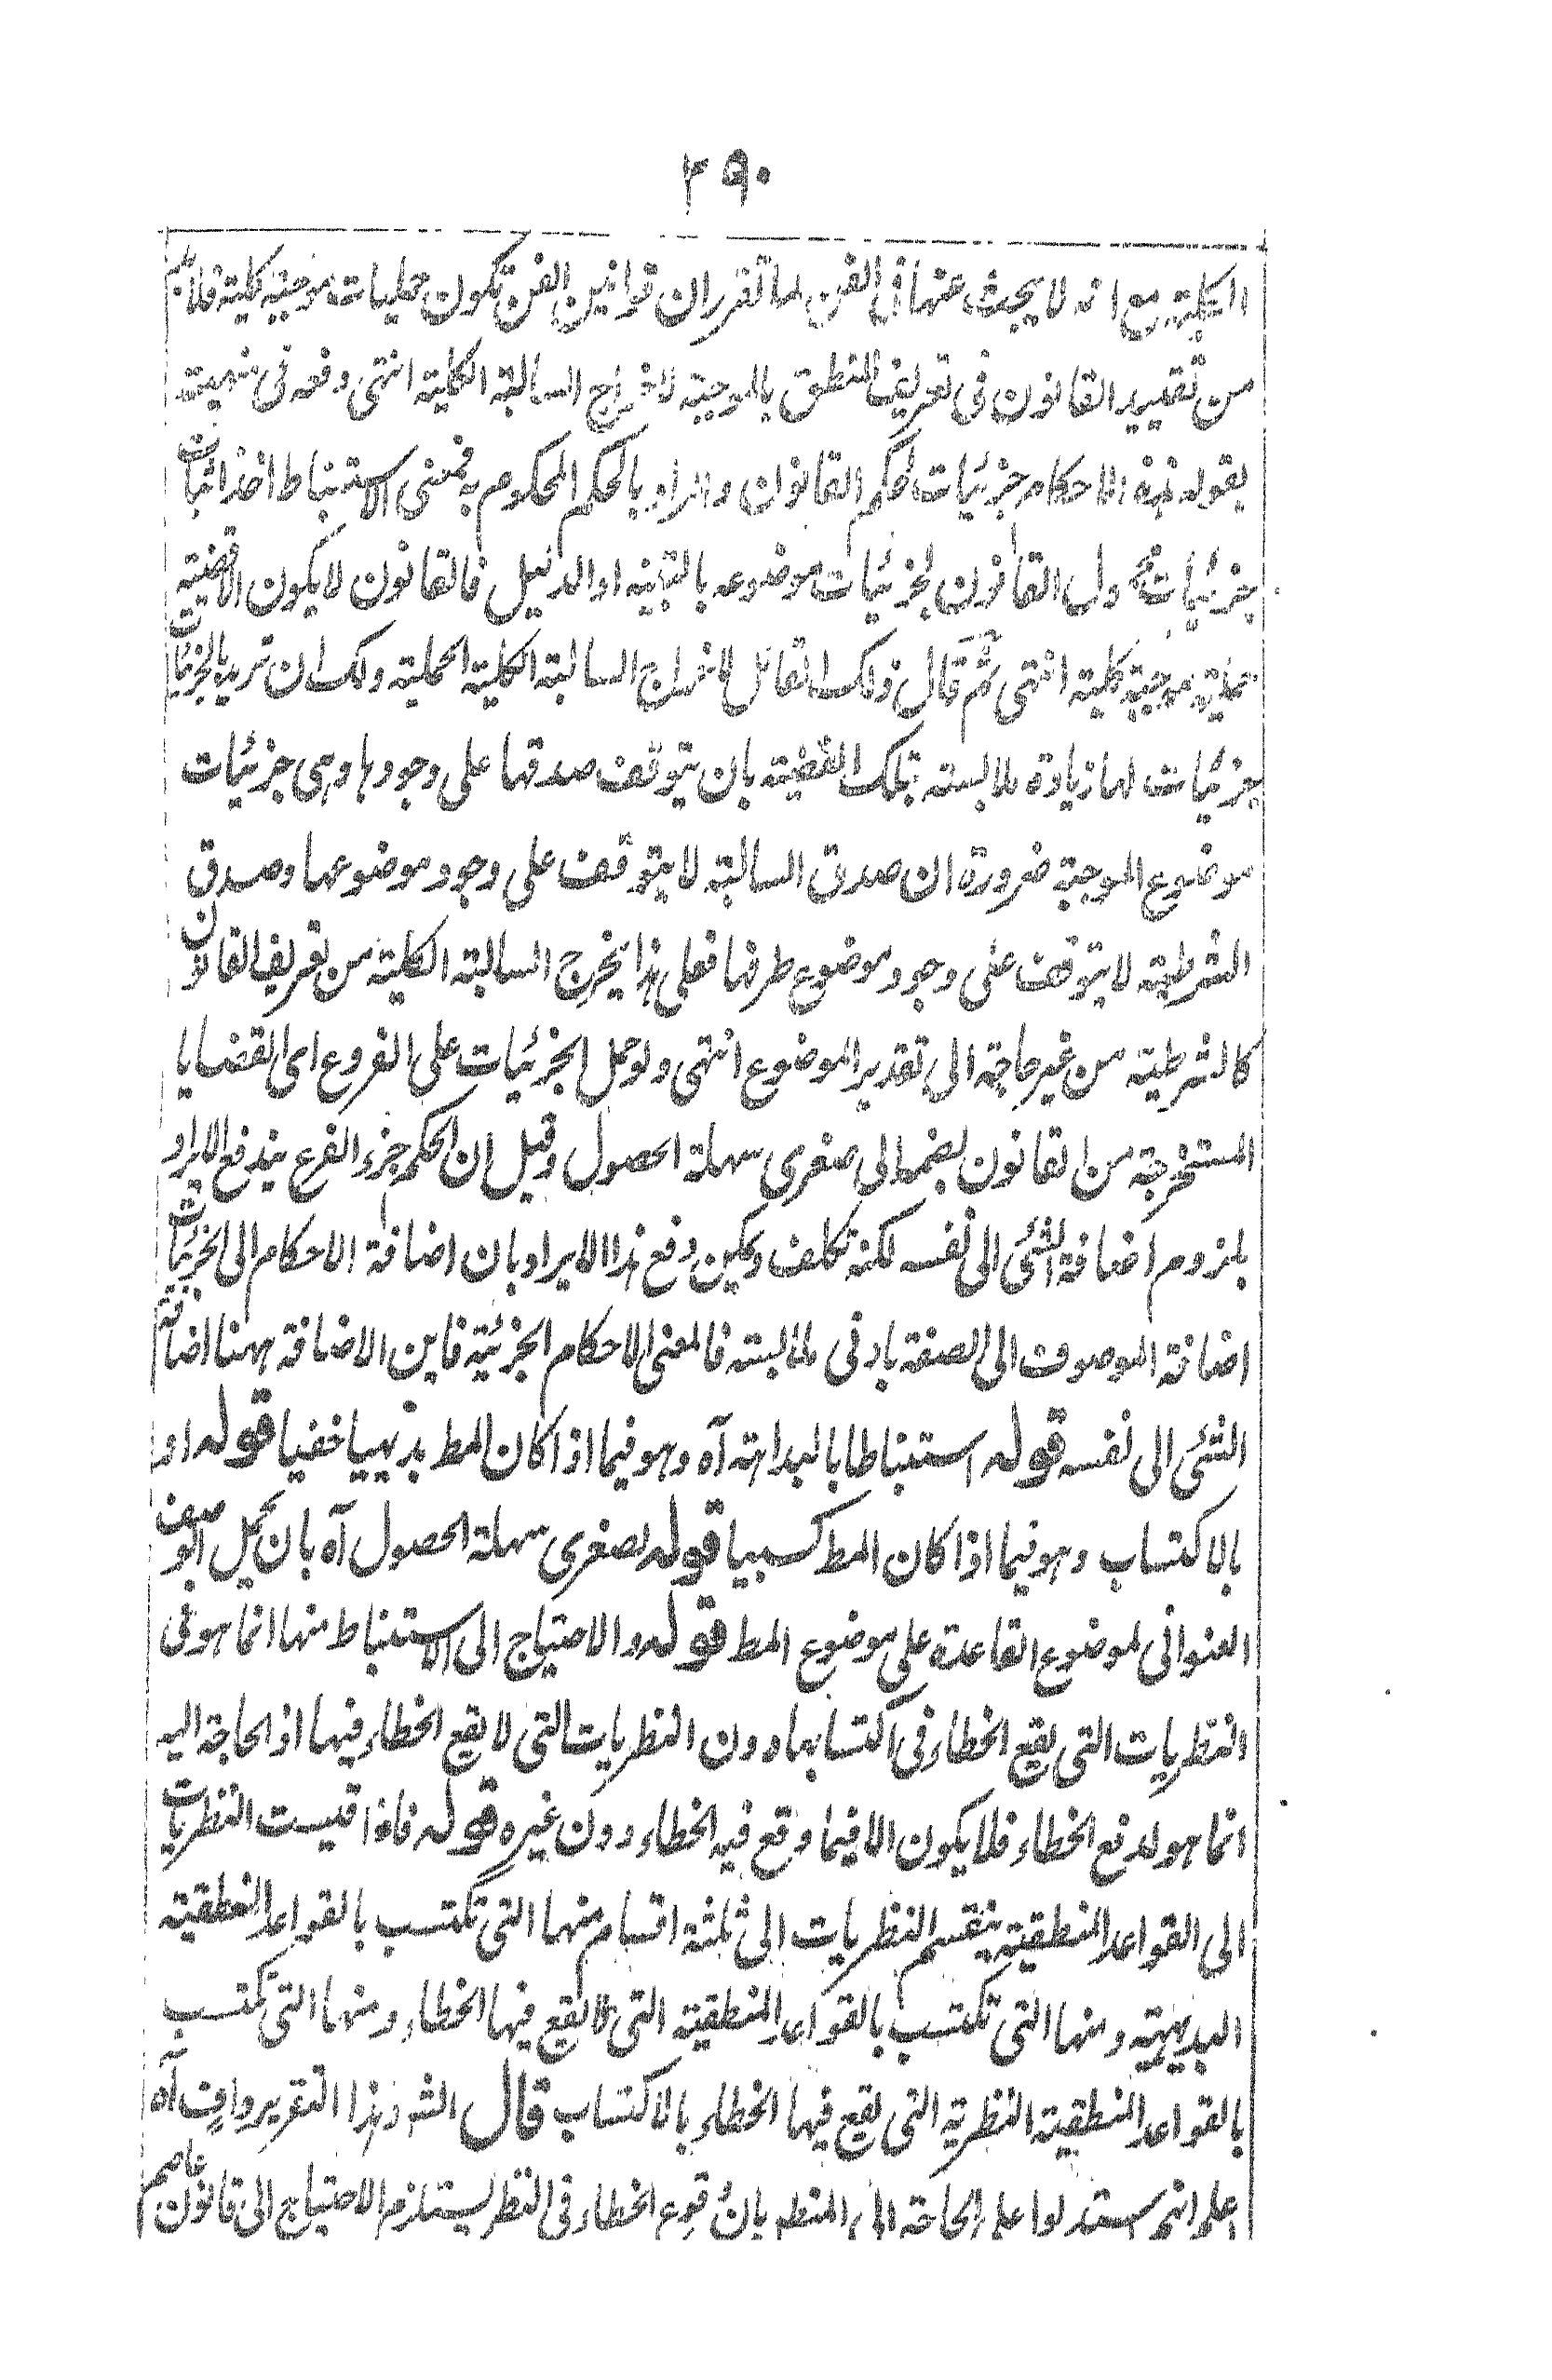 ٢٩٠
الكلية مع انه لا يبحث عنها فى الفن لما تقرر ان قوانين الفن تكون حمليات موجبة كلية فلا بد
من تقييد القانون فى تعريف المنطق بالموجبة لاخراج السالبة الكلية انتهى ودفعه فى منهيته
بقوله هذه الاحكام جزئيات لحكم القانون والمراد بالحكم المحكوم به فمعنى الاستنباط اخذ اثبات
جزئيات محمول القانون لجزئيات موضوعه بالتنبيه او الدليل فالقانون لا يكون الا قضية
حملية موجبة كلية انتهى ثم قال ذلك القائل لاخراج السالبة الكلية الحملية ولك ان تريد بالجزئيات
جزئيات لها زيادة ملابسة بتلك القضية بان يتوقف صدقها على وجودها وهى جزئيات
موضوع الموجبة ضرورة ان صدق السالبة لا يتوقف على وجود موضوعها وصدق
الشرطية لا يتوقف على وجود موضوع طرفها فعلى هذا يخرج السالبة الكلية من تعريف القانون
كالشرطية من غير حاجة الى تقدير الموضوع انتهى ولو حمل الجزئيات على الفروع اى القضايا
المستخرجة من القانون بضمها الى صغرى سهلة الحصول وقيل ان الحكم جزء الفرع يندفع الايراد
بلزوم اضافة الشئ الى نفسه لكنه تكلف ويمكن دفع هذا الايراد بان اضافة الاحكام الى الجزئيات
اضافة الموصوف الى الصفة بادنى ملابسة فالمعنى الاحكام الجزئية فاين الاضافة ههنا اضافة
الشئ الى نفسه قوله استنباطا بالبداهة آه وهو فيما اذا كان المط بديهيا خفيا قوله او
بالاكتساب وهو فيما اذا كان المط كسبيا قوله لصغرى سهلة الحصول آه بان يحمل الوصف
العنوانى لموضوع القاعدة على موضوع المط قوله والاحتياج الى الاستنباط منها انما هو فى
النظريات التى يقع الخطاء فى اكتسابها دون النظريات التى لا يقع الخطاء فيها اذ الحاجة اليه
انما هو لدفع الخطاء فلا يكون الا فيما وقع فيه الخطاء دون غيره قوله فاذا قيست النظريات
الى القواعد المنطقية ينقسم النظريات الى ثلثة اقسام منها التى تكتسب بالقواعد المنطقية
البديهية ومنها التى تكتسب بالقواعد المنطقية التى لا يقع فيها الخطاء ومنها التى تكتسب
بالقواعد المنطقية النظرية التى يقع فيها الخطاء بالاكتساب قال الشه وهذا التقرير واف آه
اعلم انهم استدلوا على الحاجة الى المنطق بان وقوع الخطاء فى النظر يستلزم الاحتياج الى قانون عاصم